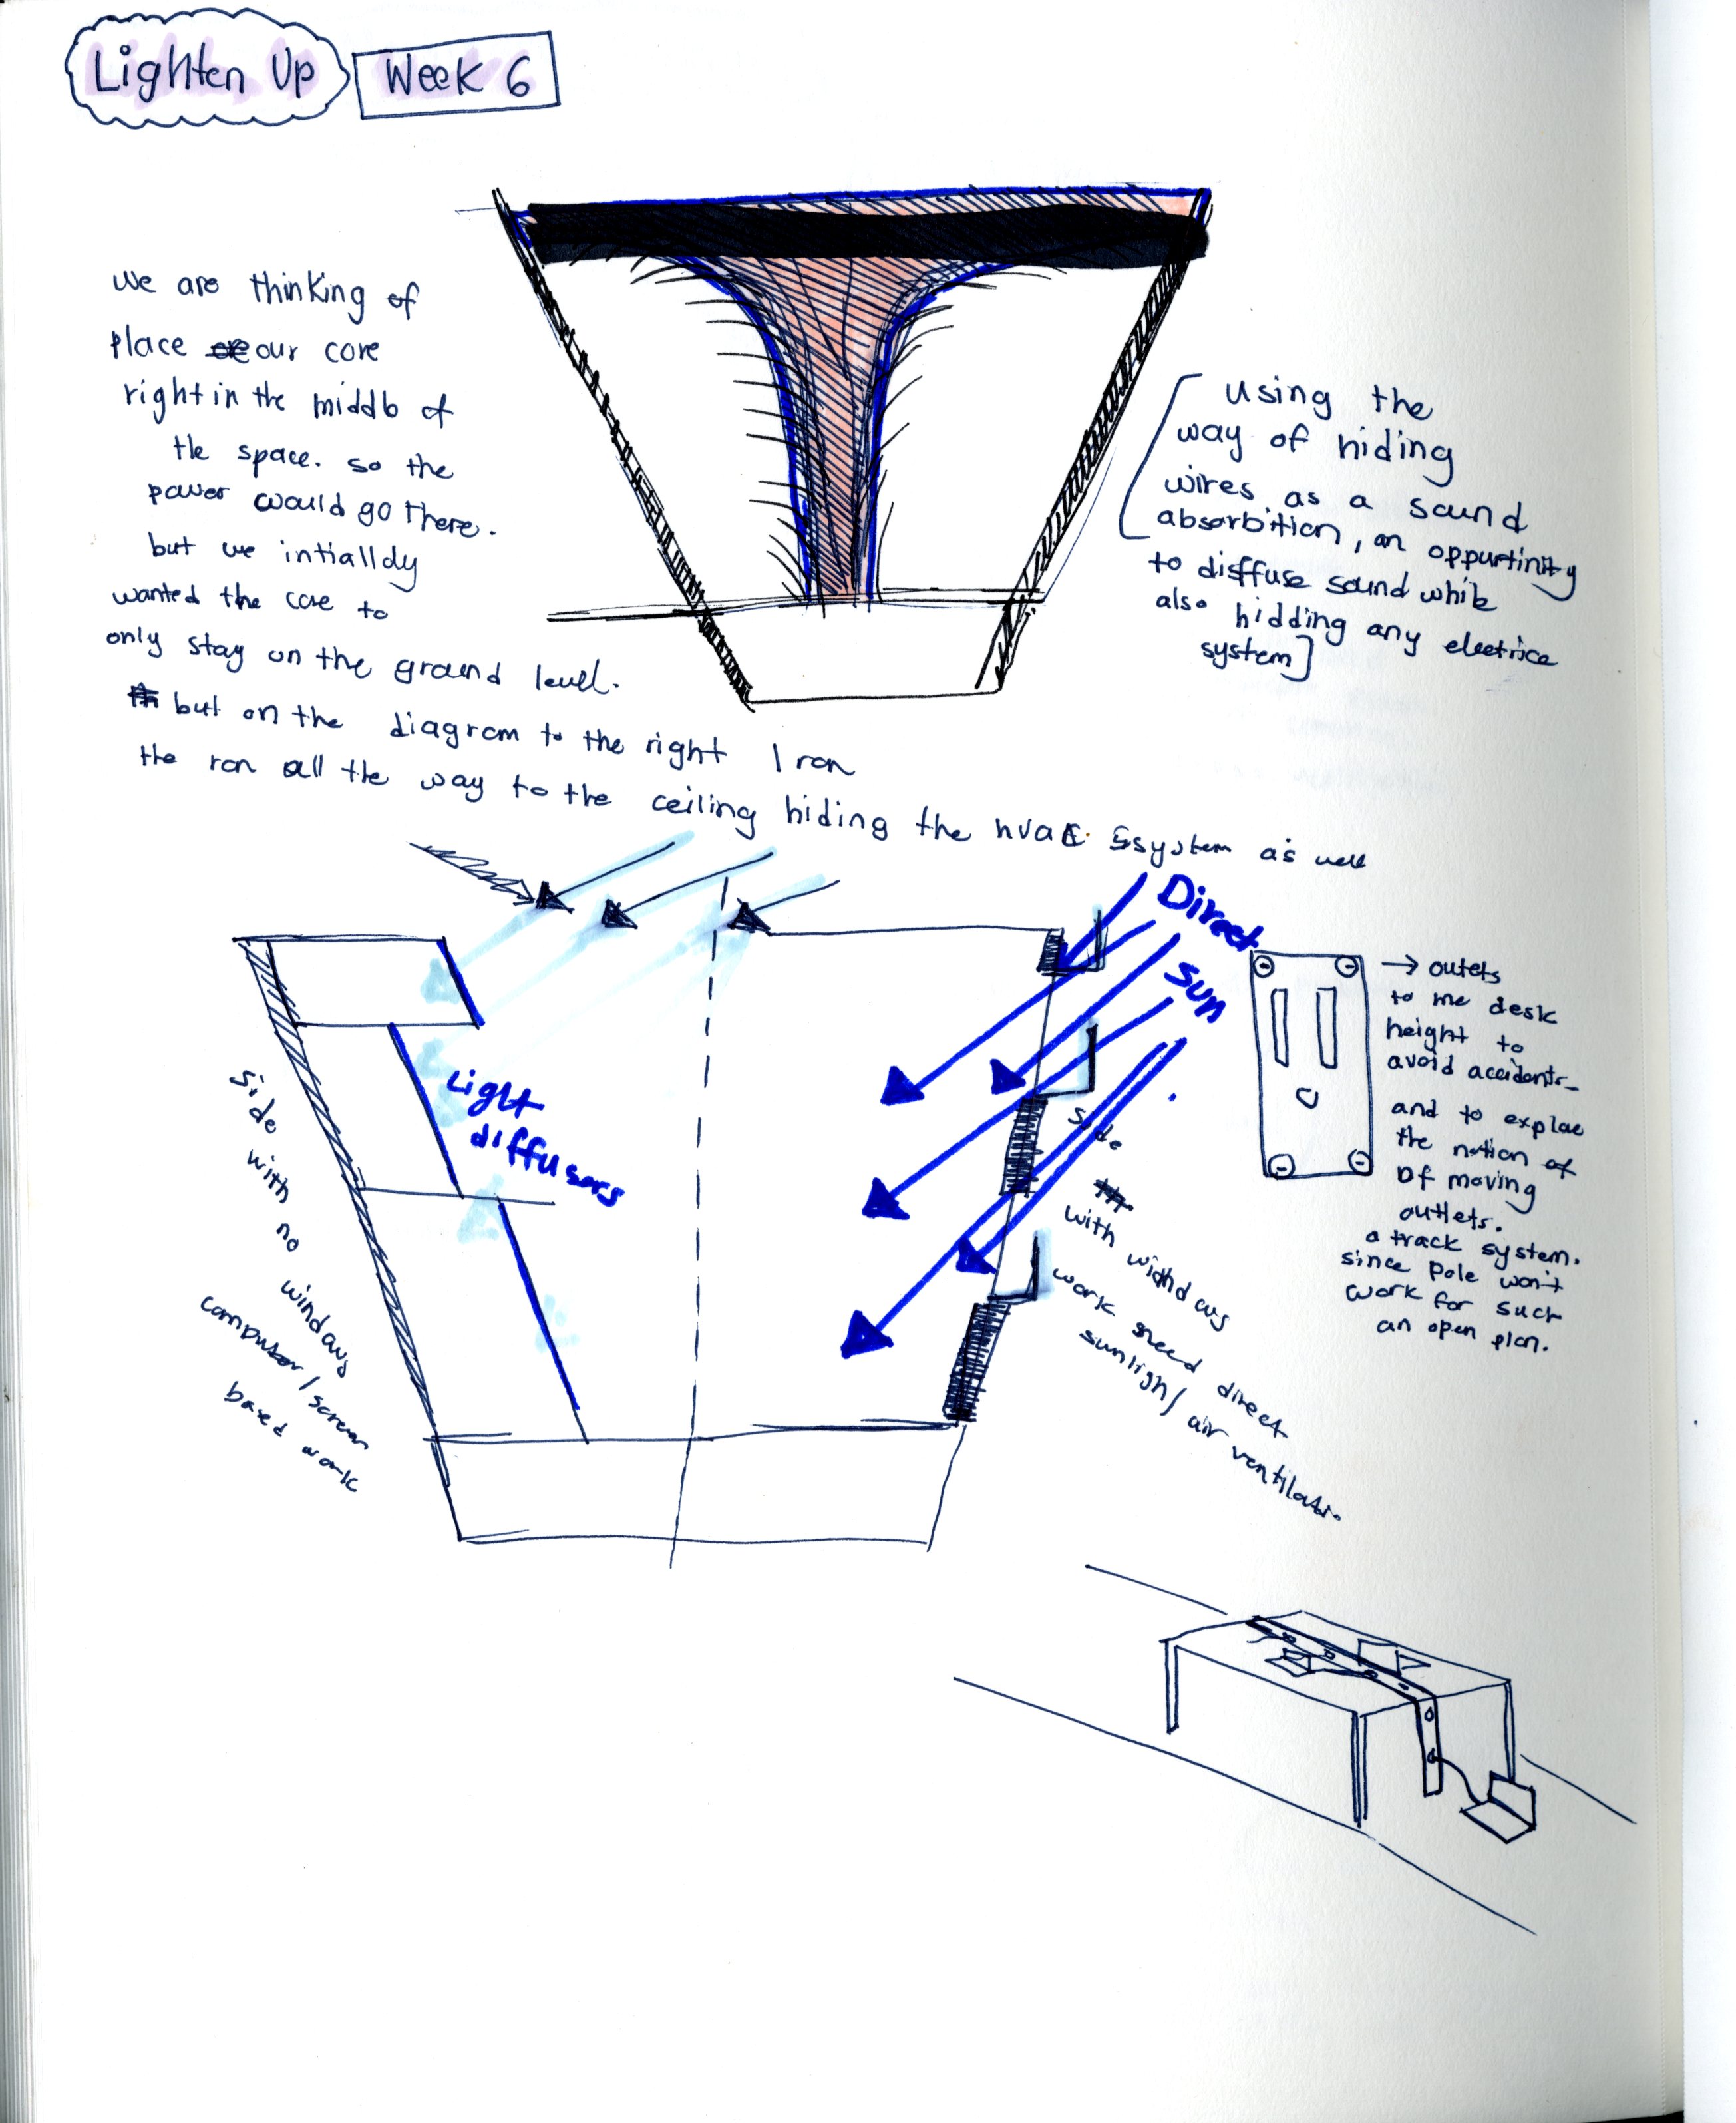 Lighten Up
Week 6
we are thinking of
place our core
right in the middb of
the space. so the
power would go there.
but we intialldy
wanted the core to
only stay on the ground level.
but on the diagram to the right I ran
the ran all the way to the ceiling hiding the hvac. Ssystem as well
[using the
way of hiding
wires as a sound
absorbition, an oppurtinity
to diffuse sound while
also hidding any electrice
system]
Direct
Sun
Light
diffusers
side with no windows
computer/screen
based work
side
with widndows
work need direct
sunligh/ air ventilation
→ outets
to me desk
height to
avoid accidents
and to explae
the notion of
of moving
outlets.
a track system.
since pole won't
work for such
an open plan.